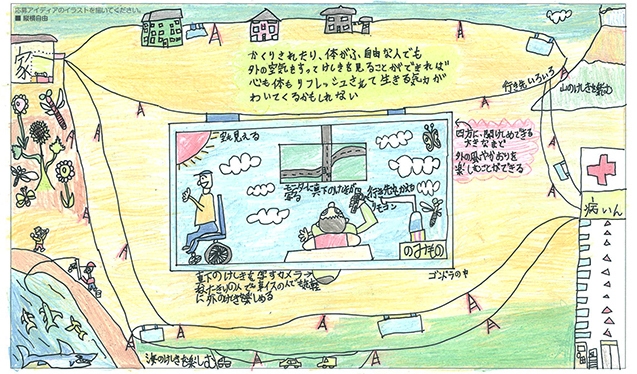 応募アイディアのイラストを描いてください。
■ 縦横自由
家
かくりされたり、体がふ自由な人でも
外の空気をすってけしきを見ることができれば
心も体もリフレッシュされて生きる気力が
わいてくるかもしれない
行き先いろいろ
山のけしきを楽しむ
四方に開けしめできる
大きなまど
外の風やかおりを
楽しむことができる
空も見える
モニターに真下の
行き先をかえる
リモコン
のみもの
病いん
真下のけしきを写すカメラ
ねたきりの人でも車イスの人でも
に外のけしきを楽しめる
ゴンドラの中
海のけしきを楽しむ